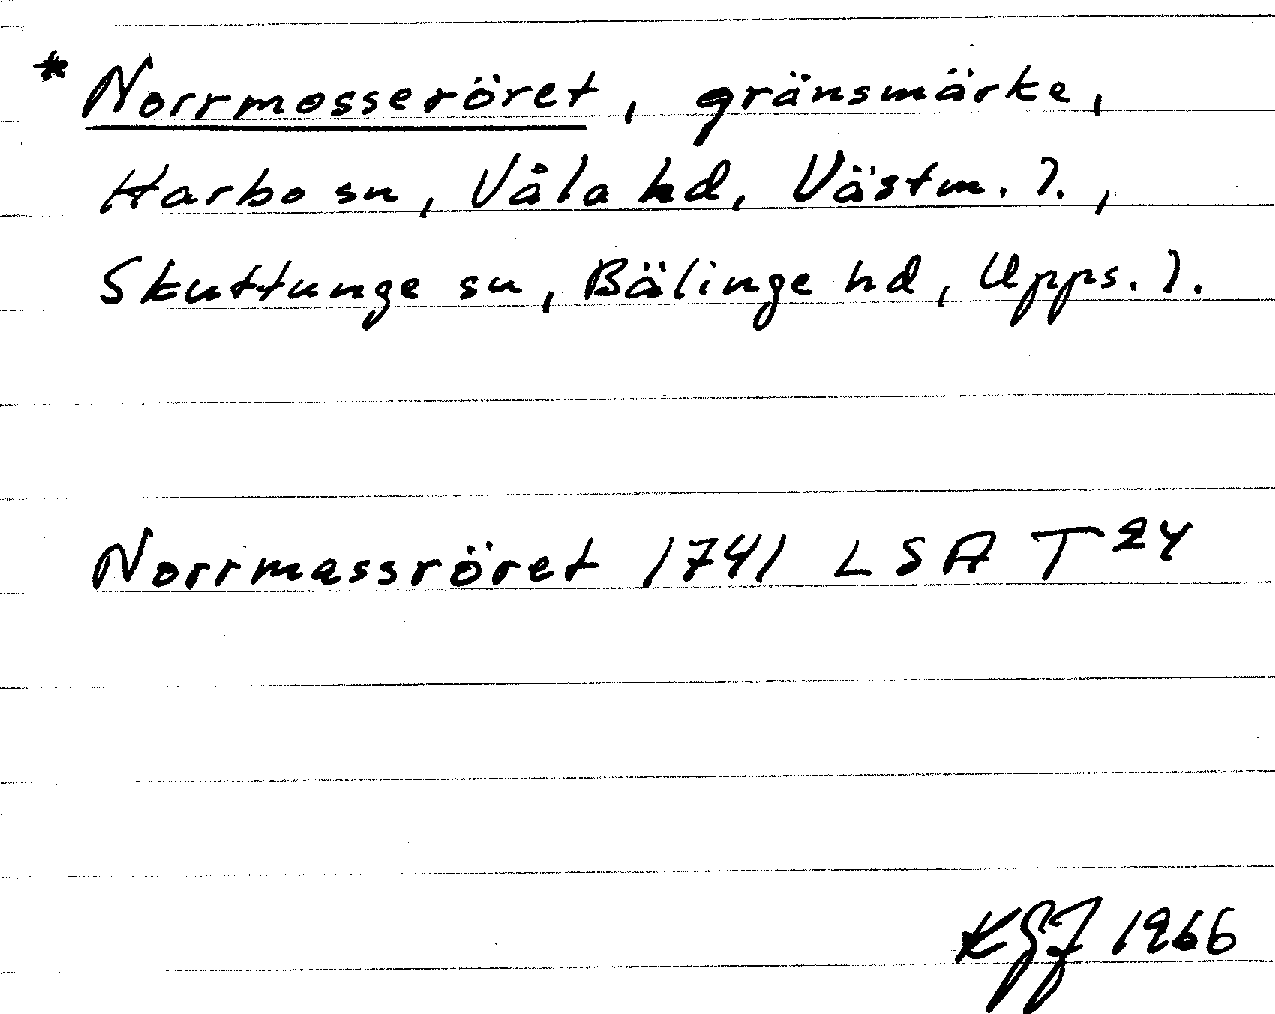 * Norrmosseröret, gränsmärke,
Harbo sn, Våla hd, Västm. l.,
Skuttunge sn, Bälinge hd, Upps. l.
Norrmassröret 1741 LSA T 24
KGJ 1966